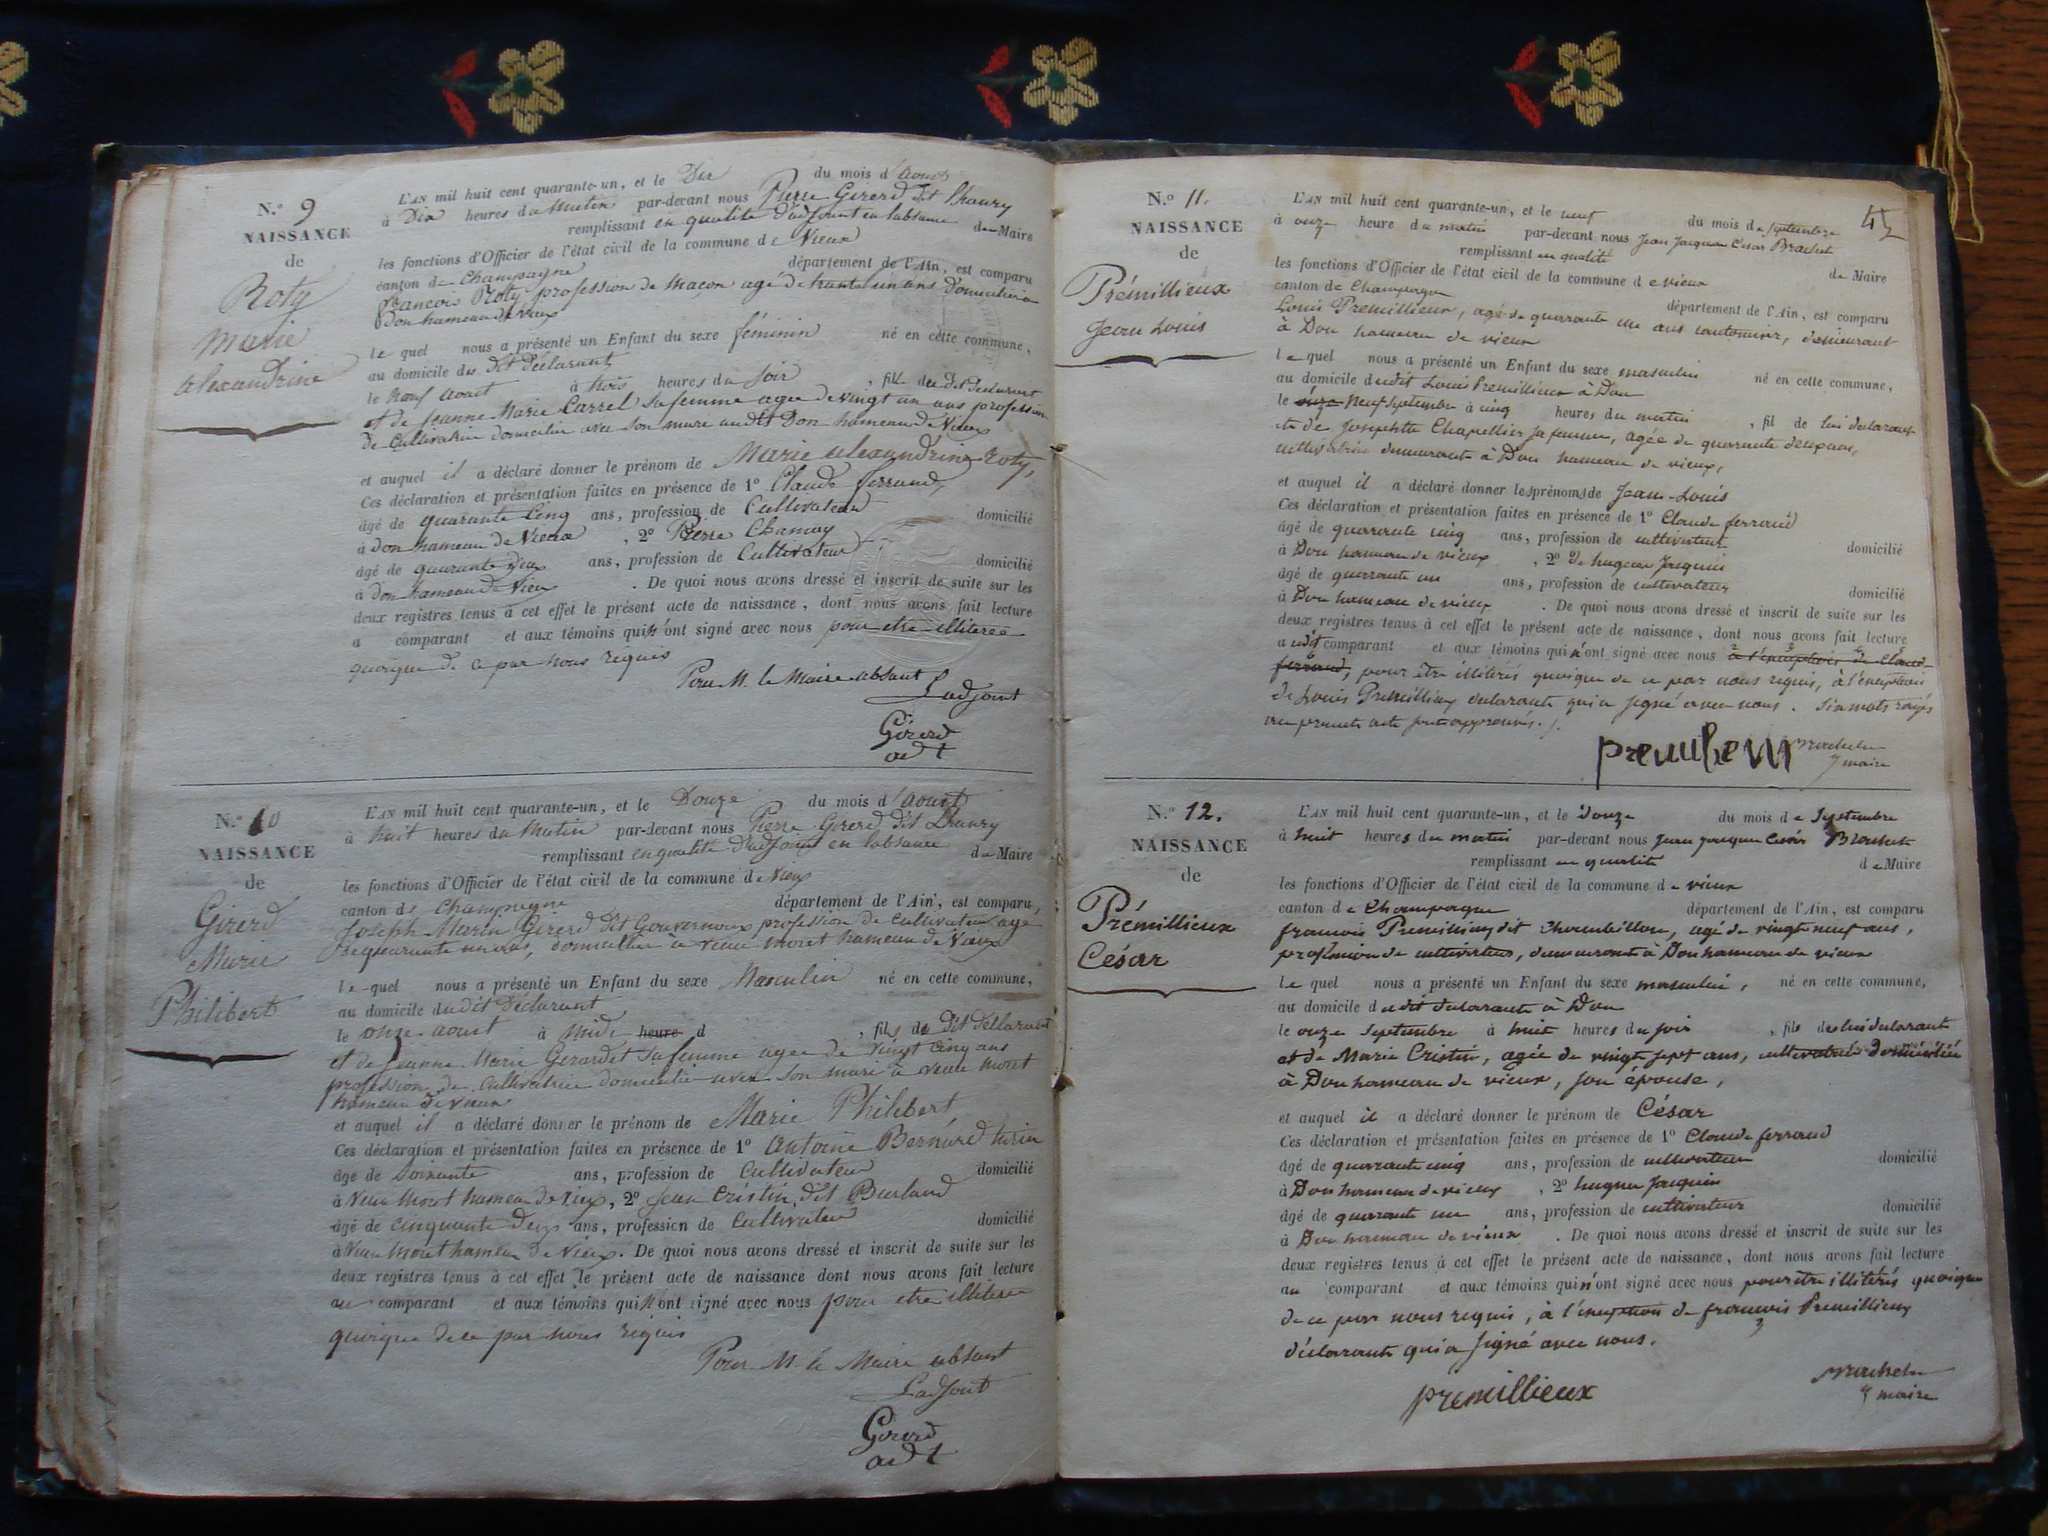 N.° 9
NAISSANCE
de
Roty
Marie
alexandrine
L'AN mil huit cent quarante-un, et le Dix du mois d'aoust
à Dix heures du Matin par-devant nous Pierre Girerd dit
remplissant en qualité d'adjoint en labsance de Maire
les fonctions d'Officier de l'état civil de la commune de Vieux
canton de Champagne département de l'Ain, est comparu
francois Roty profession de maçon agé de trante un ans Domicilié a
Don hameau de vieux
le quel nous a présenté un Enfant du sexe féminin né en cette commune,
au domicile du dit déclarant
le neuf aout à trois heures du soir , fille du dit declarant
et de jeanne Marie Carrel sa femme agee de vingt un ans profession
de Cultivatrice domicilie avec son mare au dit Don hameau de Vieux
et auquel il a déclaré donner le prénom de Marie alexandrine Roty,
Ces déclaration et présentation faites en présence de 1° Claude ferrand,
âgé de quarante Cinq ans, profession de Cultivateur domicilié
à don hameau de Vieux , 2° Pierre Chamay
âgé de quarante deux ans, profession de Cultivateur domicilié
à don hameau de Vieux . De quoi nous avons dressé et inscrit de suite sur les
deux registres tenus à cet effet le présent acte de naissance, dont nous avons fait lecture
a comparant et aux témoins qui n'ont signé avec nous pour etre illiteree
quoique de ce par nous requis
Pour M. le Maire absant
Ladjoint
Girerd
adt
N.° 10
NAISSANCE
de
Girerd
Marie
Philibert
L'AN mil huit cent quarante-un, et le Douze du mois d'aoust
à huit heures du Matin par-devant nous Pierre Girerd dit
remplissant en qualité d'adjoint en labsance de Maire
les fonctions d'Officier de l'état civil de la commune de Vieux
canton de Champagne département de l'Ain, est comparu,
Joseph Marin Girerd dit Gouvernoux profession de cultivateur agé
de quarante ans, domicilier a vieux moret hameau de Vieux
le quel nous a présenté un Enfant du sexe Masculin né en cette commune,
au domicile du dit Déclarant
le onze aoust à midi heure d , fils du dit déclarant
et de jeanne Marie Gerardet sa femme agee de vingt cinq ans
profession de cultivatrice domicilié avec son mare à vieux moret
hameau de vieux
et auquel il a déclaré donner le prénom de Marie Philibert
Ces déclaration et présentation faites en présence de 1° antoine Bernérd
âgé de soixante ans, profession de Cultivateur domicilié
à vieux moret hameau de vieux, 2° jean Cristin dit Burland
âgé de cinquante deux ans, profession de Cultivateur domicilié
à vieux moret hameau de Vieux. De quoi nous avons dressé et inscrit de suite sur les
deux registres tenus à cet effet le présent acte de naissance dont nous avons fait lecture
au comparant et aux témoins qui n'ont signé avec nous pour etre illiteree
quoique de ce par nous requis
Pour M. le Maire absant
Ladjout
Girerd
adt
45
N.° 11.
NAISSANCE
de
Prémillieux
Jean Louis
L'AN mil huit cent quarante-un, et le neuf du mois de septembre
à onze heure du matin par-devant nous Jean Jacques César Brachet
remplissant en qualité de Maire
les fonctions d'Officier de l'état civil de la commune de vieux
canton de Champagne département de l'Ain, est comparu
Louis Premillieux, agé de quarante un ans cantonnier, demeurant
à Don hameau de vieux
le quel nous a présenté un Enfant du sexe masculin né en cette commune,
au domicile dudit Louis Premillieux à Don
le onze neuf septembre à cinq heures du matin , fil de lui declarant
et de Josephte Chapellier sa femme, agée de quarante deux ans,
cultivatrice demeurante à Don hameau de vieux,
et auquel il a déclaré donner les prénoms de Jean-Louis
Ces déclaration et présentation faites en présence de 1° Claude ferrand
âgé de quarante cinq ans, profession de cultivateur domicilié
à Don hameau de vieux , 2° de hugue Jacquin
âgé de quarante un ans, profession de cultivateur domicilié
à Don hameau de vieux . De quoi nous avons dressé et inscrit de suite sur les
deux registres tenus à cet effet le présent acte de naissance, dont nous avons fait lecture
a udit comparant et aux témoins qui n'ont signé avec nous à l'exception de Claude
ferrand, pour être illitérés quoique de ce par nous requis, à l'exception
de Louis Premillieux declarante qui a signé avec nous. Six mots rayés
au present acte sont approuvés.
premilieux
Brachet
maire
N.° 12.
NAISSANCE
de
Prémillieux
César
L'AN mil huit cent quarante-un, et le douze du mois de Septembre
à huit heures du matin par-devant nous Jean Jacques César Brachet
remplissant en qualité de Maire
les fonctions d'Officier de l'état civil de la commune de vieux
canton de Champagne département de l'Ain, est comparu
francois Premillieux dit Chambillon, agé de vingt neuf ans,
profession de cultivateur, demeurant à Don hameau de vieux
le quel nous a présenté un Enfant du sexe masculin, né en cette commune,
au domicile dudit declarante à Don
le onze Septembre à huit heures du soir , fils de lui declarant
et de Marie Cristin, agée de vingt sept ans, cultivatrice domiciliée
à Don hameau de vieux, son épouse,
et auquel il a déclaré donner le prénom de César
Ces déclaration et présentation faites en présence de 1° Claude ferrand
âgé de quarante cinq ans, profession de cultivateur domicilié
à Don hameau de vieux , 2° hugue Jacquin
âgé de quarante un ans, profession de cultivateur domicilié
à Don hameau de vieux . De quoi nous avons dressé et inscrit de suite sur les
deux registres tenus à cet effet le présent acte de naissance, dont nous avons fait lecture
au comparant et aux témoins qui n'ont signé avec nous pour être illitérés quoique
de ce par nous requis, à l'exception de francois Premillieux
déclarante qui a signé avec nous.
premillieux
Brachet
maire